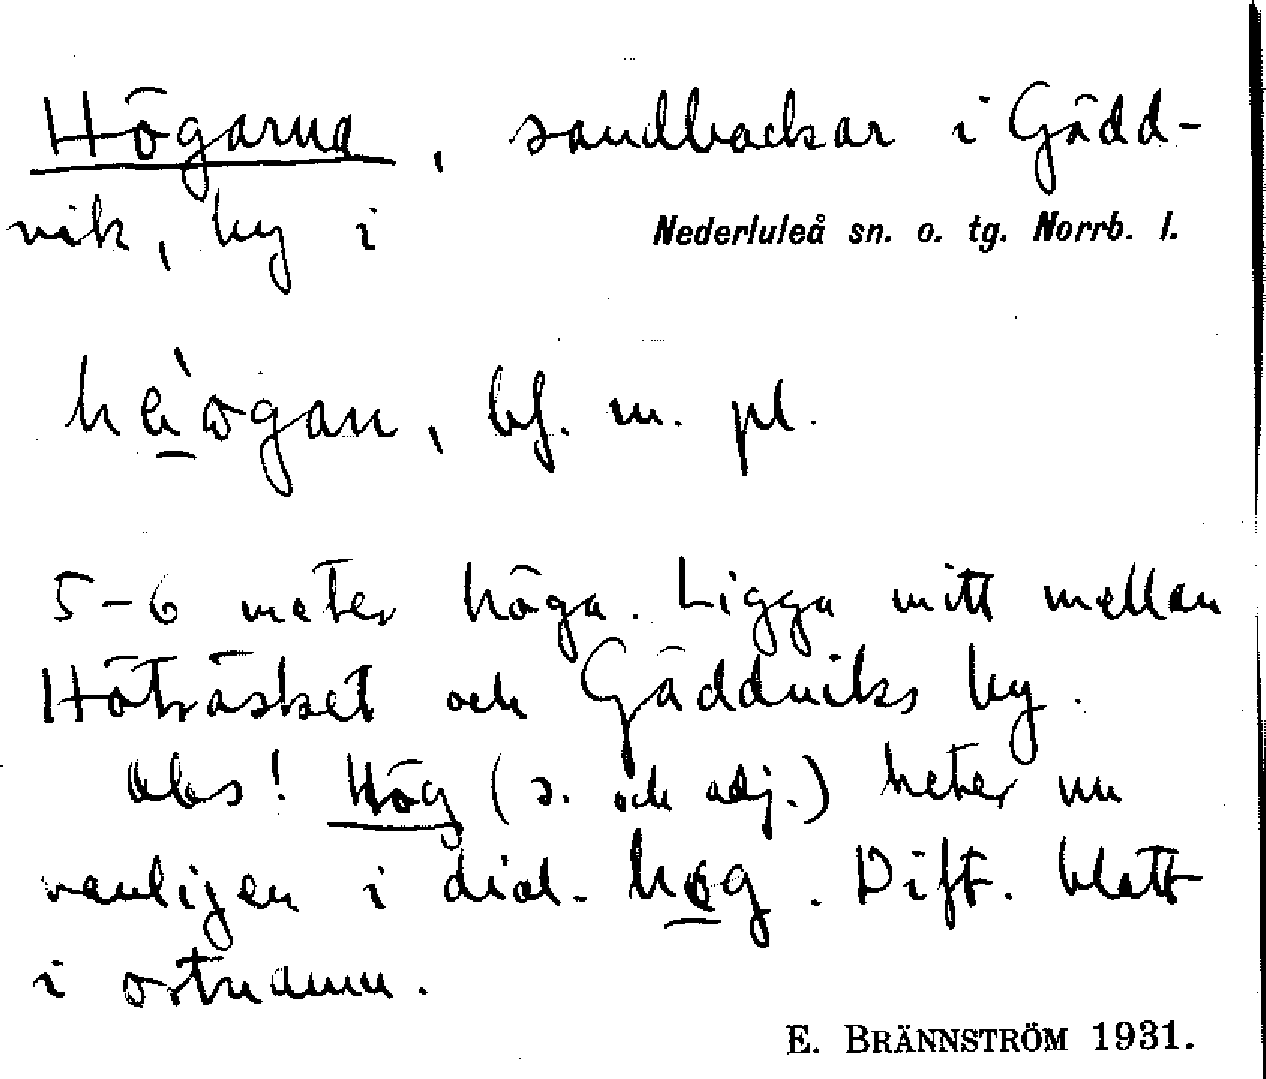 Högarna, sandbackar i Gädd-
vik, by i Nederluleå sn. o. tg. Norrb. l.
bf. m. pl.
5-6 meter höga. Ligga mitt mellan
Höträsket och Gäddviks by.
Obs! Hög (s. och adj.) heter nu
vanligen i dial. høg. Dift. blott
i ortnamn.
E. BRÄNNSTRÖM 1931.